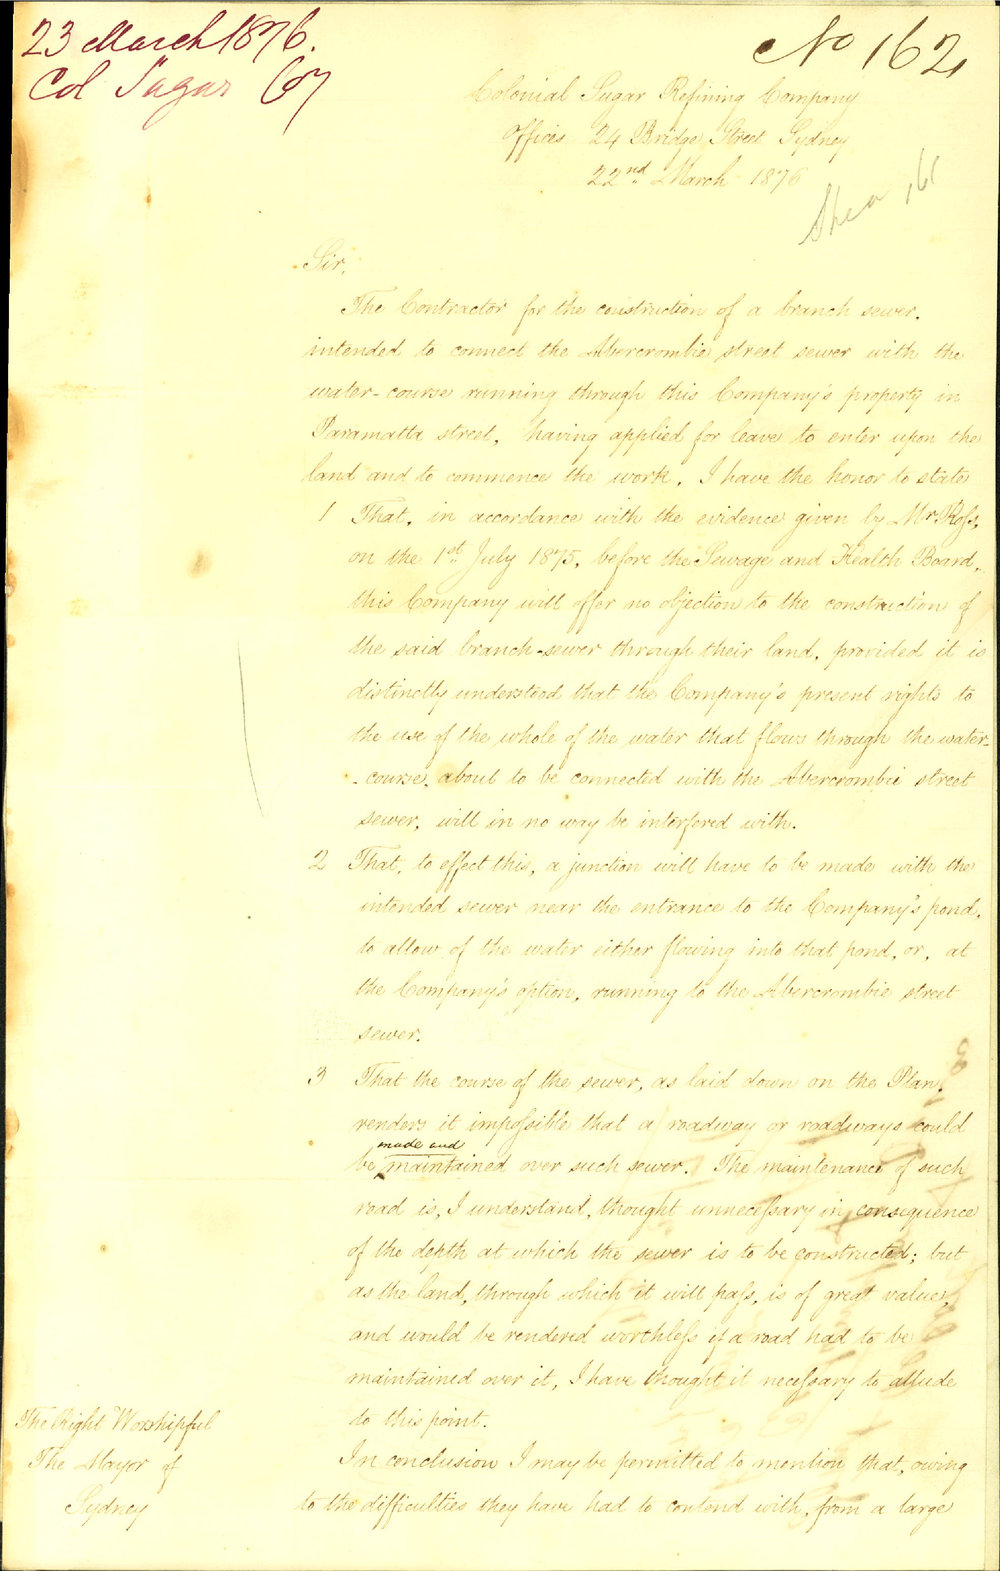 23 March 1876.
Col Sugar Coy
No 162
Colonial Sugar Refining Company
Offices 24 Bridge Street Sydney
22nd March 1876
161
Sir,
The Contractor for the construction of a branch sewer,
intended to connect the Abercrombie street sewer with the
water-course running through this Company's property in
Paramatta street, having applied for leave to enter upon the
land and to commence the work, I have the honor to state
1 That, in accordance with the evidence given by Mr Ross,
on the 1st July 1875, before the Sewage and Health Board,
this Company will offer no objection to the construction of
the said branch-sewer through their land, provided it is
distinctly understood that the Company's present rights to
the use of the whole of the water that flows through the water-
-course, about to be connected with the Abercrombie street
sewer, will in no way be interfered with.
2 That, to effect this, a junction will have to be made with the
intended sewer near the entrance to the Company's pond,
to allow of the water either flowing into that pond, or, at
the Company's option, running to the Abercrombie street
sewer.
3 That the course of the sewer, as laid down on the Plan,
renders it impossible that a roadway or roadways could
made and
be maintained over such sewer. The maintenance of such
road is, I understand, thought unnecessary in consequence
of the depth at which the sewer is to be constructed; but
as the land, through which it will pass, is of great value,
and would be rendered worthless if a road had to be
maintained over it, I have thought it necessary to allude
to this point.
In conclusion I may be permitted to mention that, owing
to the difficulties they have had to contend with, from a large
The Right Worshipful
The Mayor of
Sydney